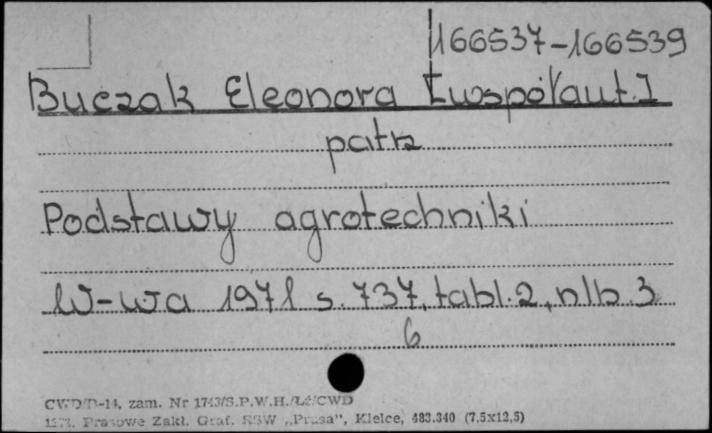 166537-166539
Buczak Eleonora [współaut.]
patrz
Podstawy agrotechniki
W-wa 1971 s. 737, tabl. 2, nlb 3
6
CWD/D-14, zam. Nr 1743/S.P.W.H./Lł/CWD
Prasowe Zakł. Graf. RSW „Prasa”, Kielce, 483.340 (7,5x12,5)